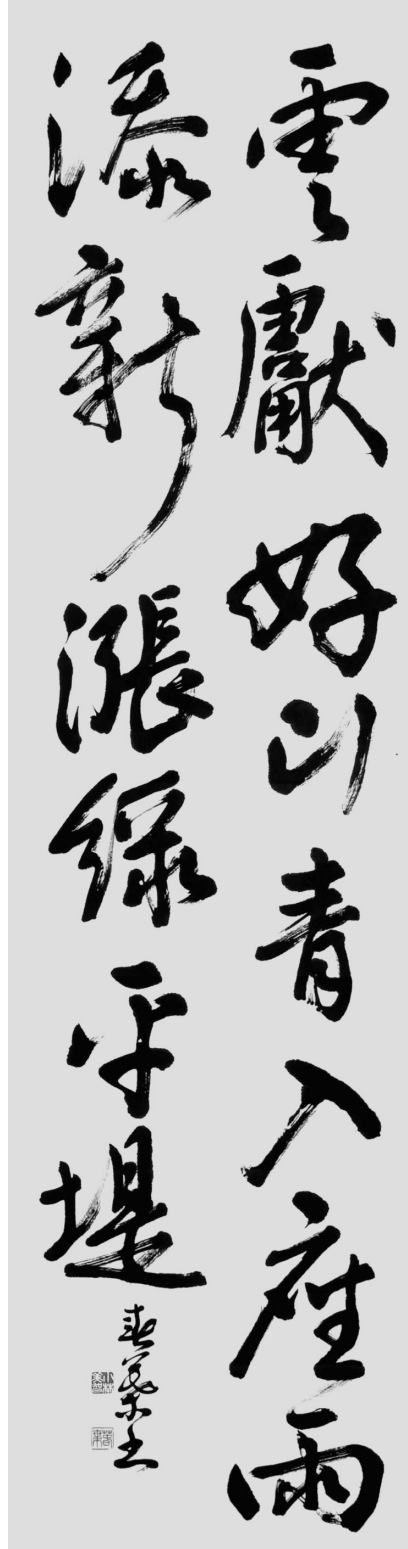 雲獻好山青入座雨
添新漲綠平堤